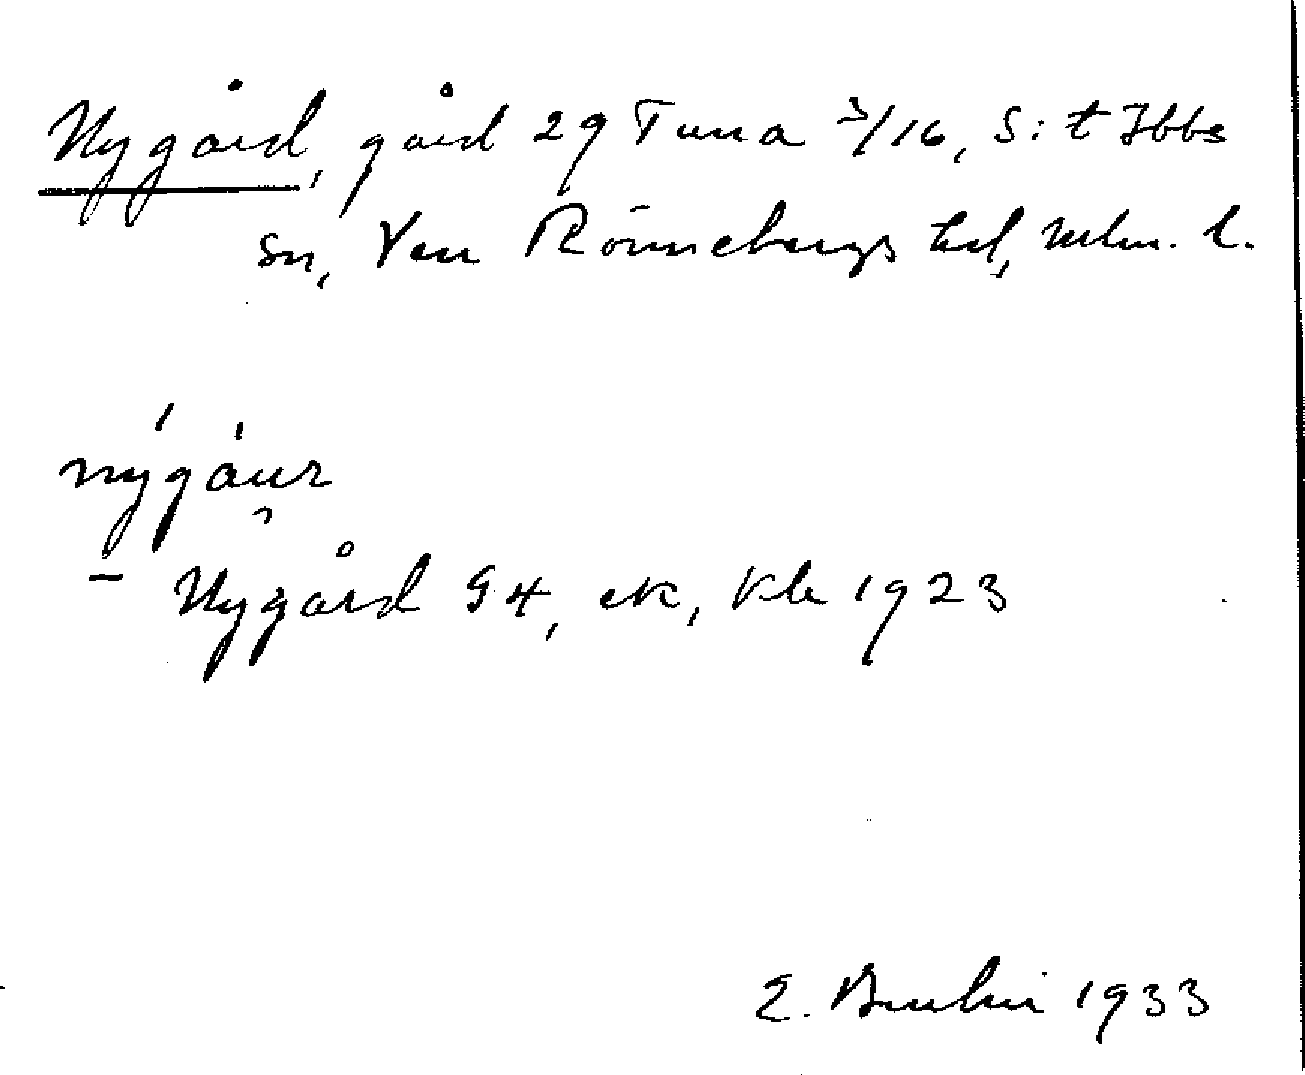 Nygård, gård 29 Tuna 3/16, S:t Ibbs
sn, Ven Rönnebergs hd, Mlm. l.
nýgáur
– Nygård G4, ek, 1923
E. 1933